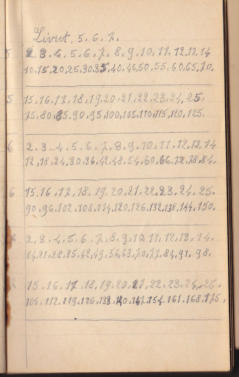 Livret, 5. 6. 7.
5 2. 3. 4. 5. 6. 7. 8. 9. 10. 11. 12. 13. 14
10. 15. 20. 25. 30. 35. 40. 45. 50. 55. 60. 65. 70.
5 15. 16. 17. 18. 19. 20. 21. 22. 23. 24. 25.
75. 80. 85. 90. 95. 100. 105. 110. 115. 120. 125.
6 2. 3. 4. 5. 6. 7. 8. 9. 10. 11. 12. 13. 14
12. 18. 24. 30. 36. 42. 48. 54. 60. 66. 72. 78. 84.
6 15. 16. 17. 18. 19. 20. 21. 22. 23. 24. 25.
90. 96. 102. 108. 114. 120. 126. 132. 138. 144. 150.
2. 3. 4. 5. 6. 7. 8. 9. 10. 11. 12. 13. 14.
14. 21. 28. 35. 42. 49. 56. 63. 70. 77. 84. 91. 98.
15. 16. 17. 18. 19. 20. 21. 22. 23. 24. 25.
105. 112. 119. 126. 133. 140. 147. 154. 161. 168. 175.